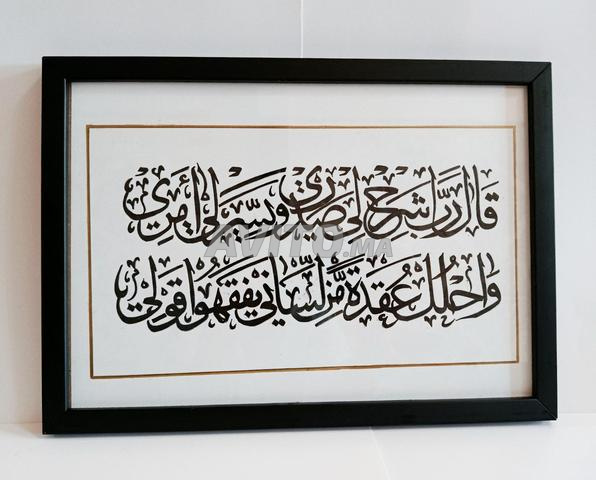 قَالَ رَبِّ اشْرَحْ لِي صَدْرِي وَيَسِّرْ لِي أَمْرِي
وَاحْلُلْ عُقْدَةً مِّن لِّسَانِي يَفْقَهُوا قَوْلِي
AVITO.MA